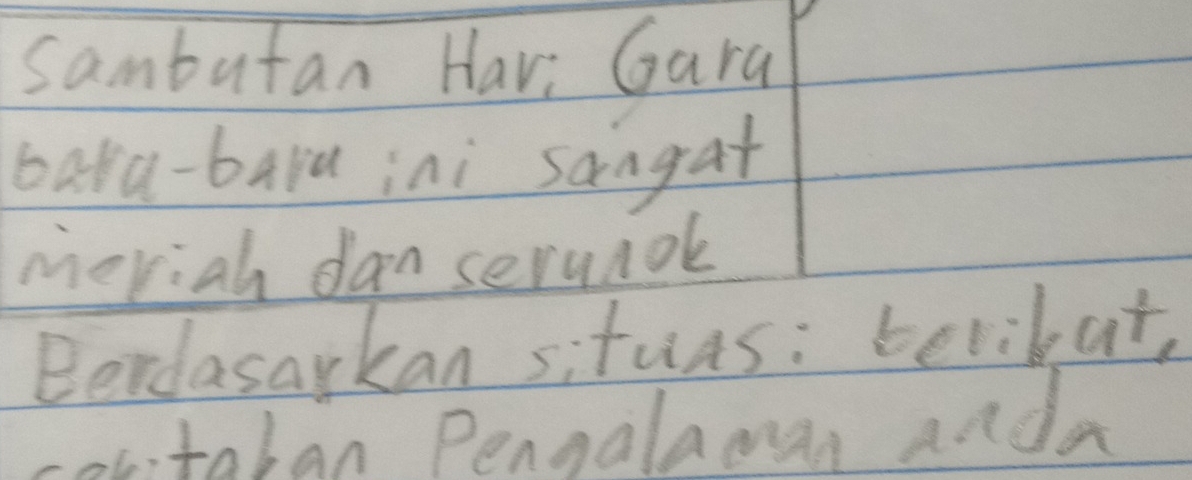 Sambutan Hari Guru
baru-baru ini sangat
meriah dan serunok
Berdasarkan situasi berikut,
ceritakan Pengalaman anda